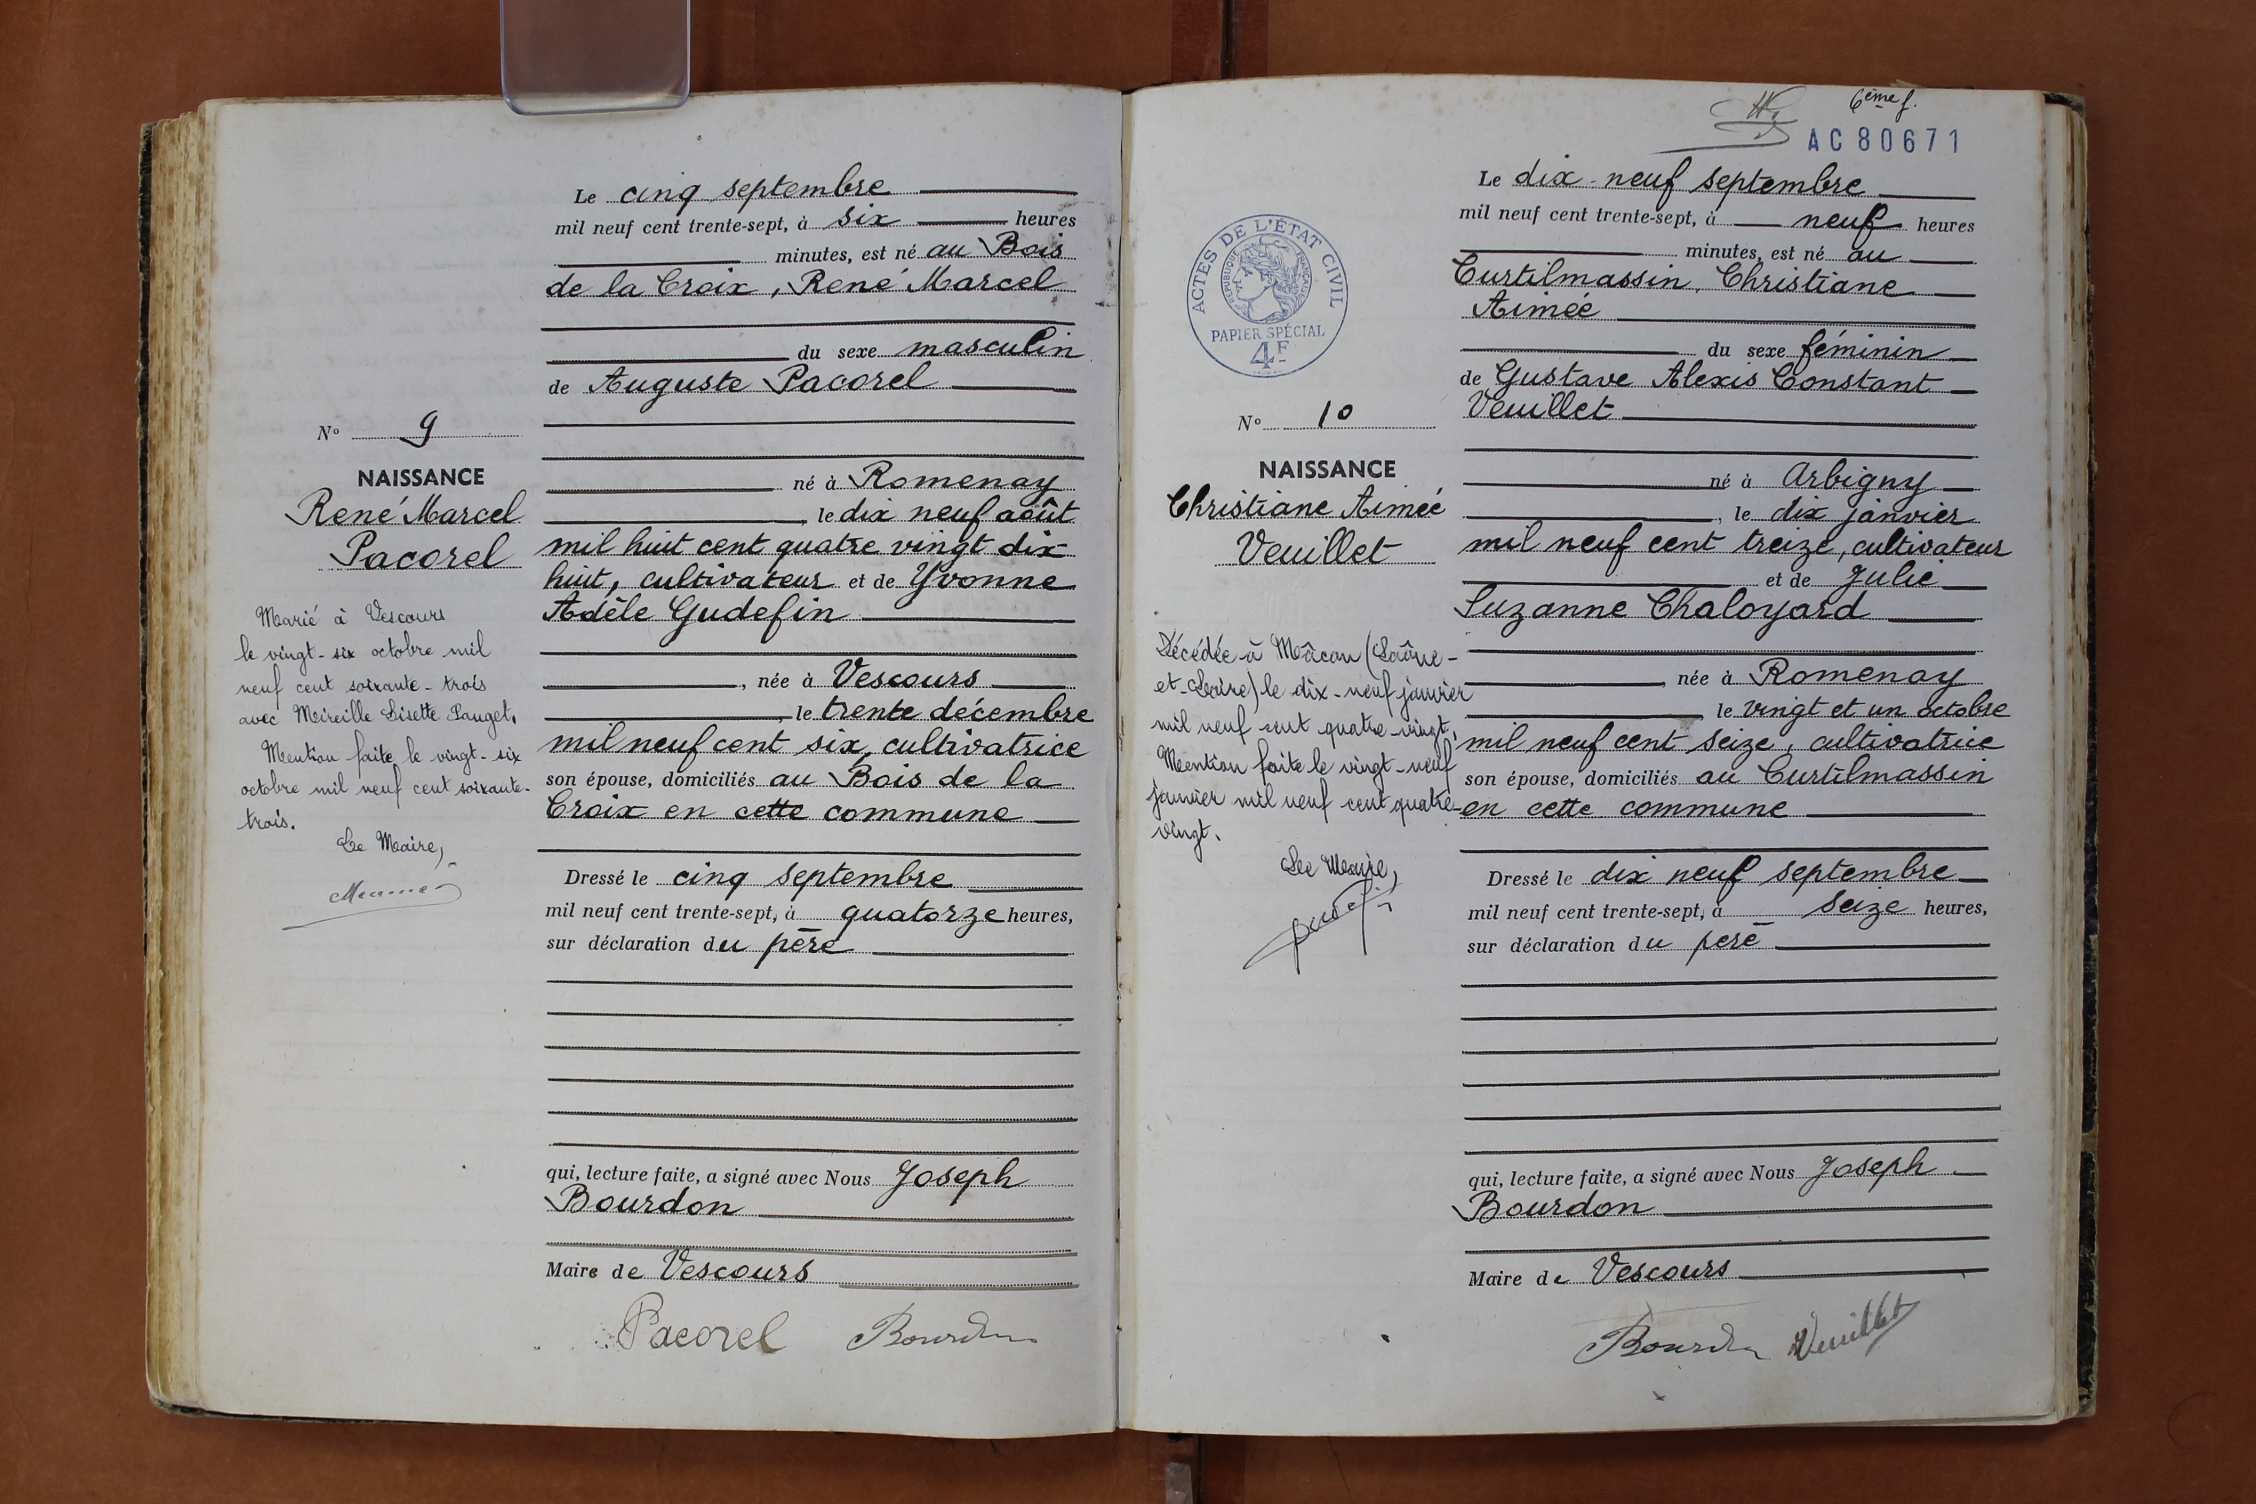 Le cinq septembre
mil neuf cent trente-sept, à six heures
minutes, est né au Bois
de la Croix, René Marcel
du sexe masculin
de Auguste Pacorel
né à Romenay
, le dix neuf août
mil huit cent quatre vingt dix
huit, cultivateur et de Yvonne
Adèle Gudefin
, née à Vescours
, le trente décembre
mil neuf cent six, cultivatrice
son épouse, domiciliés au Bois de la
Croix en cette commune
Dressé le cinq septembre
mil neuf cent trente-sept, à quatorze heures,
sur déclaration du père
qui, lecture faite, a signé avec Nous Joseph
Bourdon
Maire de Vescours
Pacorel Bourdon
N° 9
NAISSANCE
René Marcel
Pacorel
Marié à Vescours
le vingt-six octobre mil
neuf cent soixante-trois
avec Mireille Lisette Pauget.
Mention faite le vingt-six
octobre mil neuf cent soixante-
trois.
Le Maire,
6ème f.
AC80671
ACTES DE L'ÉTAT CIVIL
RÉPUBLIQUE FRANÇAISE
PAPIER SPÉCIAL
4F
Le dix-neuf septembre
mil neuf cent trente-sept, à neuf heures
minutes, est né au
Curtilmassin, Christiane
Aimée
du sexe féminin
de Gustave Alexis Constant
Veuillet
né à Arbigny
, le dix janvier
mil neuf cent treize, cultivateur
et de Julie
Suzanne Chaloyard
, née à Romenay
le vingt et un octobre
mil neuf cent seize, cultivatrice
son épouse, domiciliés au Curtilmassin
en cette commune
Dressé le dix neuf septembre
mil neuf cent trente-sept, à seize heures,
sur déclaration du père
qui, lecture faite, a signé avec Nous Joseph
Bourdon
Maire de Vescours
Bourdon Veuillet
N° 10
NAISSANCE
Christiane Aimée
Veuillet
Décédée à Mâcon (Saône-
et-Loire) le dix-neuf janvier
mil neuf cent quatre-vingt.
Mention faite le vingt-neuf
janvier mil neuf cent quatre-
vingt.
Le Maire,